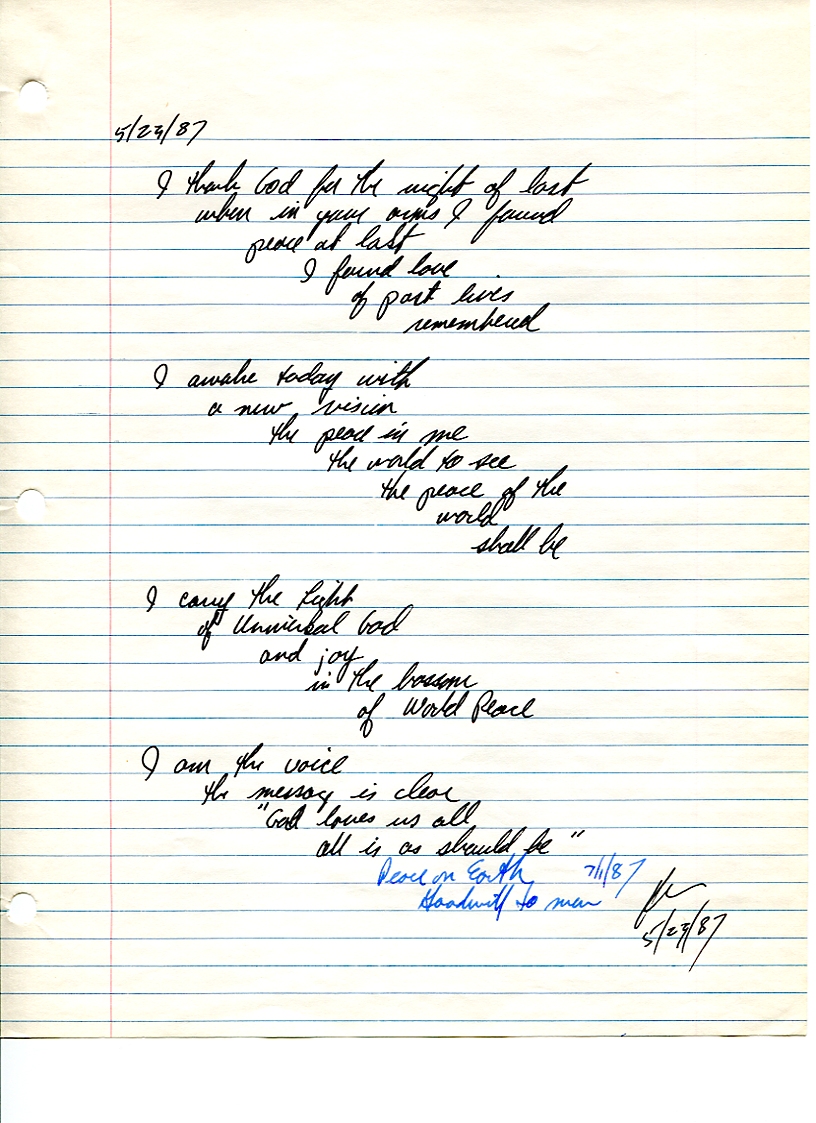 5/23/87
I thank God for the night of last
when in your arms I found
peace at last
I found love
of past lives
remembered
I awake today with
a new vision
the peace in me
the world to see
the peace of the
world
shall be
I carry the Light
of Universal God
and joy
in the bossom
of World Peace
I am the voice
the message is clear
"God loves us all
all is as should be"
Peace on Earth 7/1/87
Goodwill to men
5/23/87